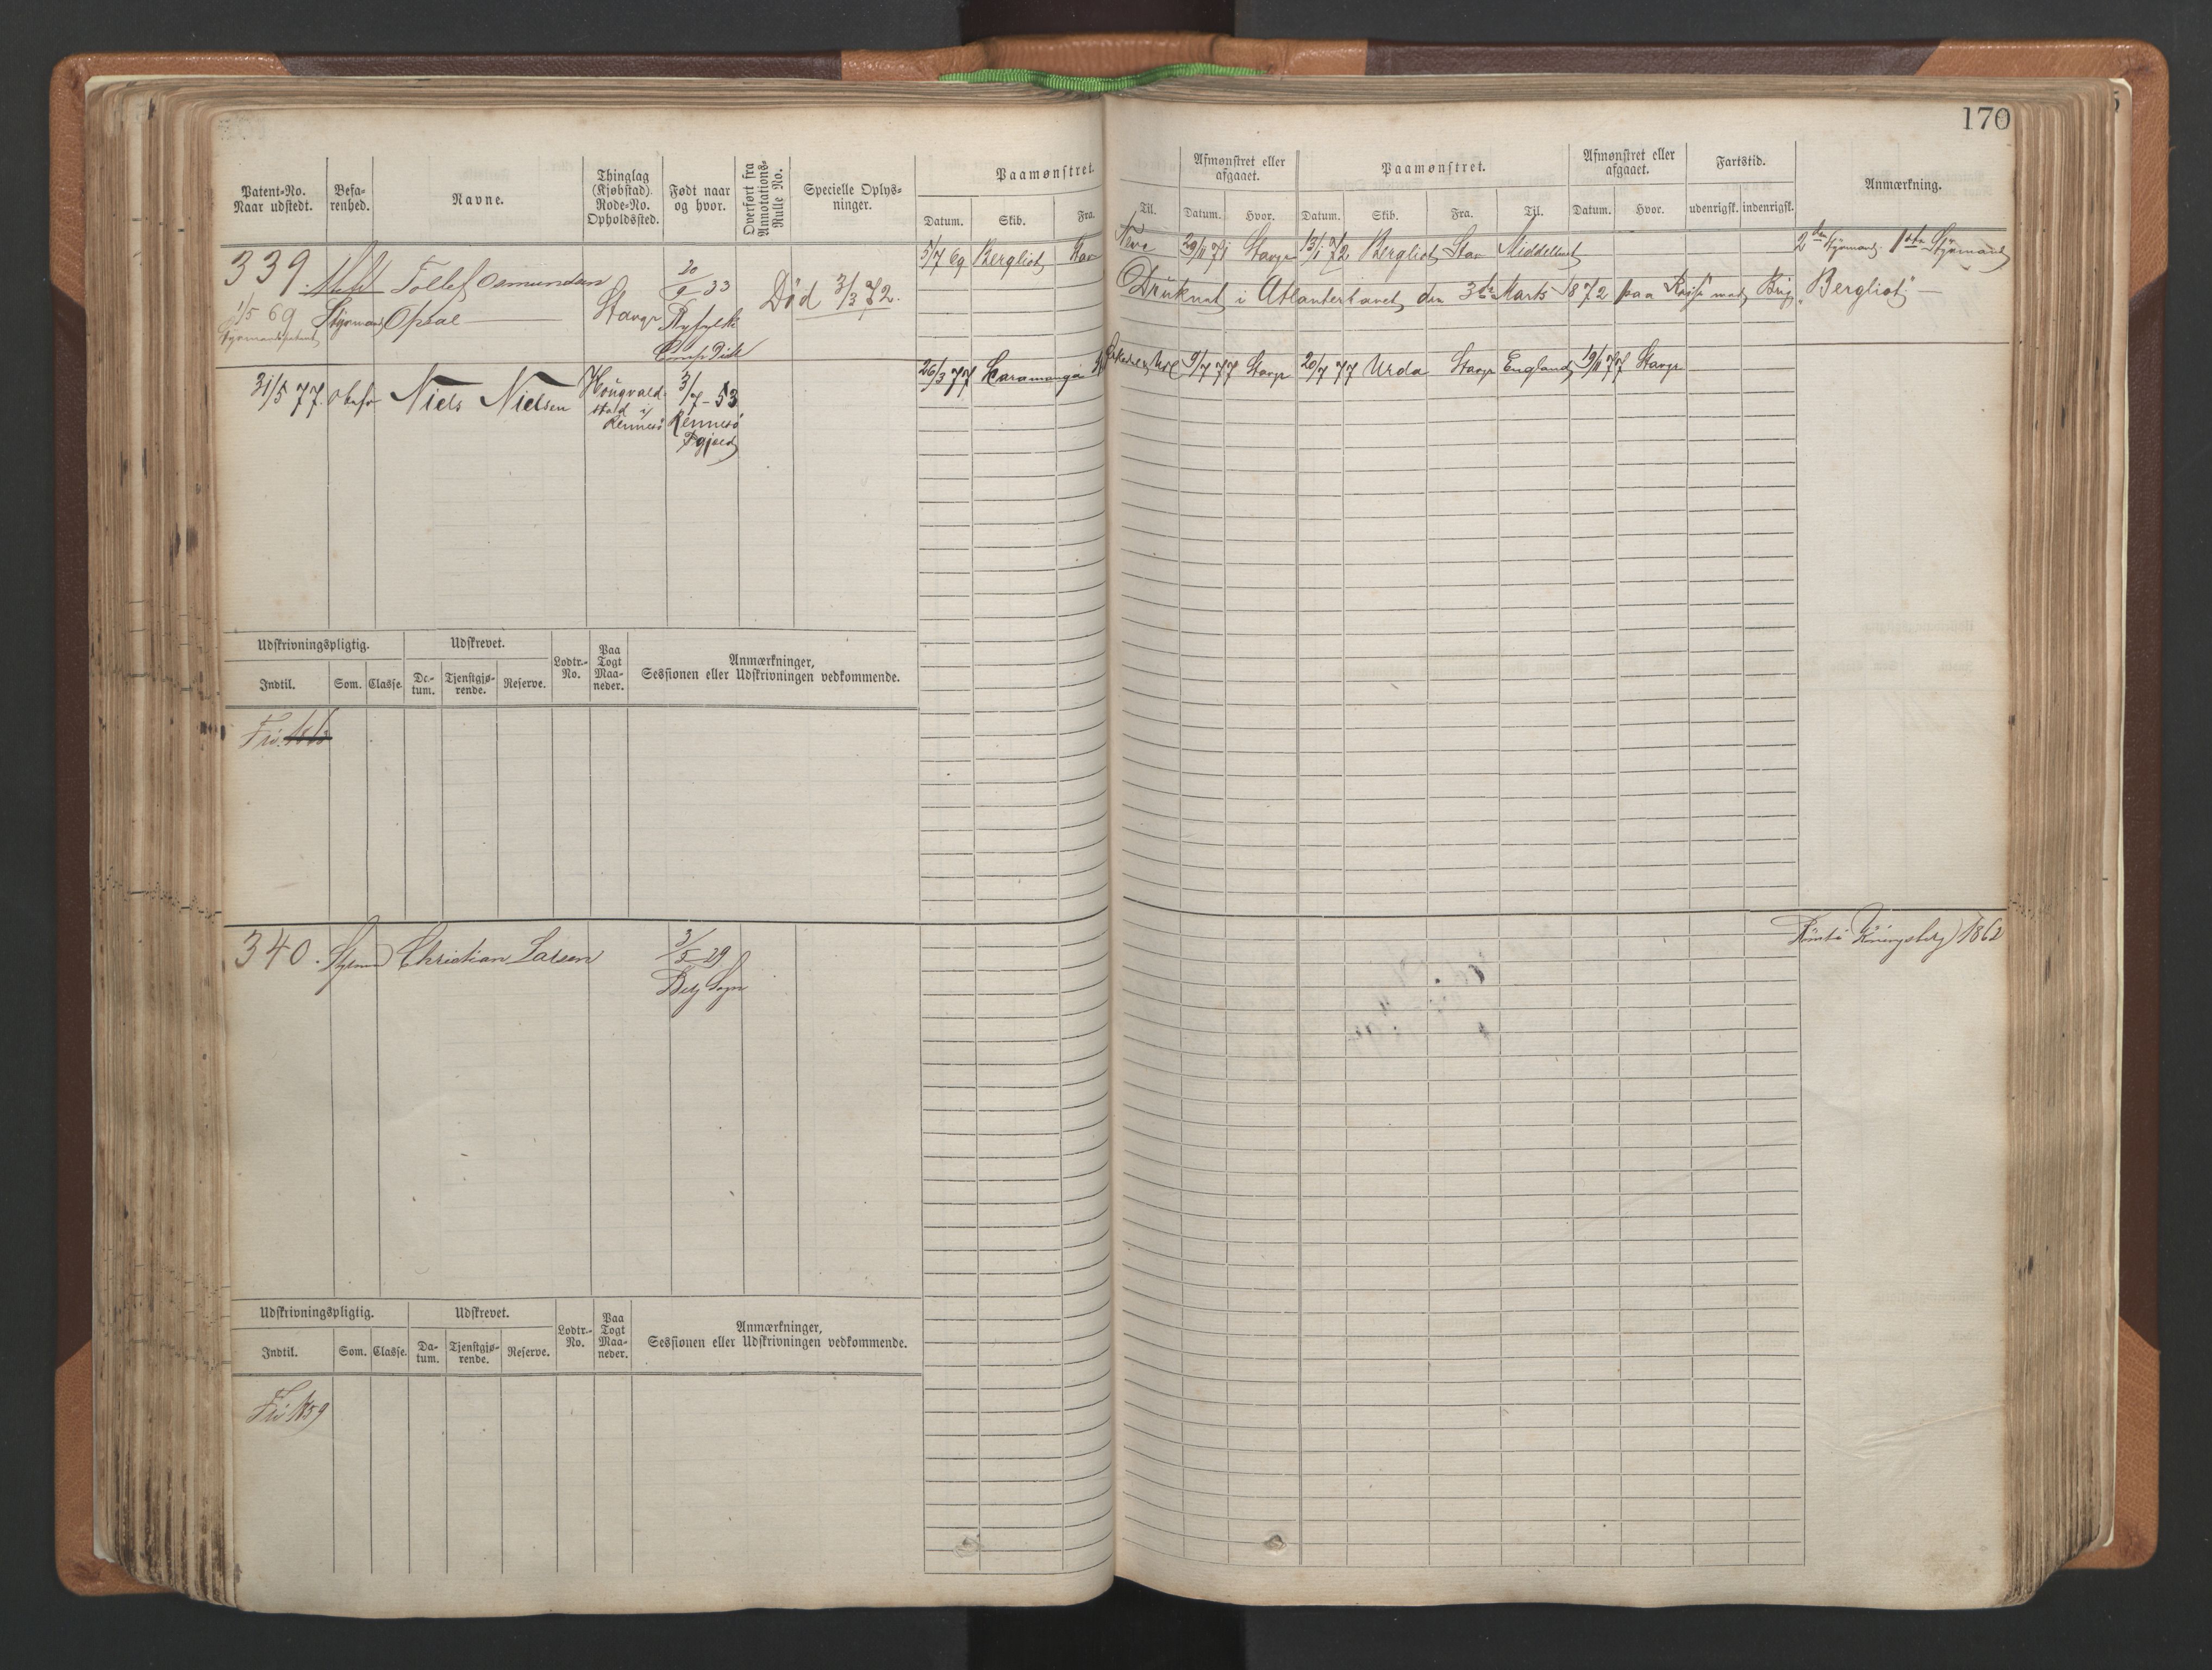 170
Patent-No. Naar udstedt.
Befa-
renhed.
Navne.
Thinglag
(Kjøbstad)
Rode-No.
Opholdssted.
Født naar
og hvor.
Overført fra
Annotations-
Rulle No.
Specielle Oplys-
ninger.
Paamønstret.
Datum. Skib. Fra. Til.
Afmønstret eller
afgaaet.
Datum. Hvor.
Paamønstret.
Datum. Skib. Fra. Til.
Afmønstret eller
afgaaet.
Datum. Hvor.
Fartstid.
udenrigsk. indenrigsk.
Anmærkning.
339. Tollef Osmundsen
1/5 69 Styrmand Opsal
Stavgr
20/9 33
Ryfylke
Død 3/3 72.
5/7 69 Bergliot Stav
29/11 71 Stavgr 13/1 72 Bergliot Stav Middelhavet
2den Styrmand. 1ste Styrmand
Druknet i Atlanterhavet den 3de Marts 1872 paa Reise med Brig "Bergliot" —
31/5 77. Niels Nielsen
3/7 - 53
Rennesø
26/3 77
9/7 77 Stavgr 20/7 77 Urda Stavgr England 19/11 77 Stavgr
Udskrivningspligtig. Udskrevet. Lodtr.-
No.
Paa
Togt
Maa-
neder.
Anmærkninger,
Sessionen eller Udskrivningen vedkommende.
Indtil. Som. Classe. Da-
tum. Tjenstgjø-
rende. Reserve.
Fri.
340. Christian Larsen
3/5 29
Sogn
1862
Udskrivningspligtig. Udskrevet. Lodtr.-
No.
Paa
Togt
Maa-
neder.
Anmærkninger,
Sessionen eller Udskrivningen vedkommende.
Indtil. Som. Classe. Da-
tum. Tjenstgjø-
rende. Reserve.
Fri 1859